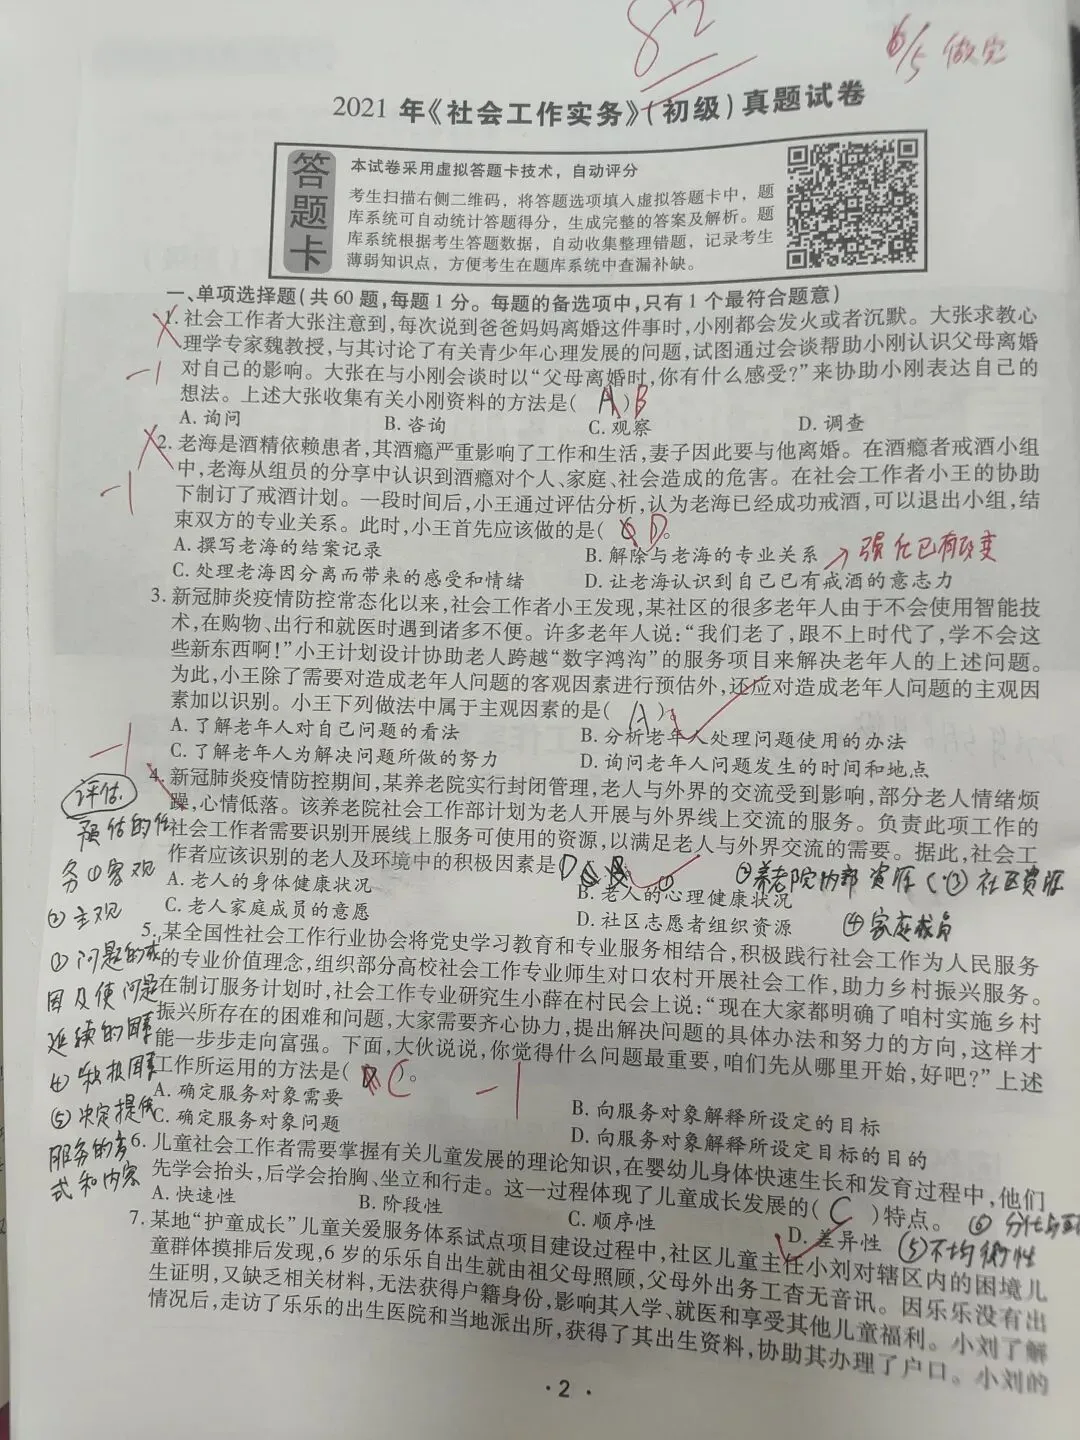 82
6/5 做完
2021 年《社会工作实务》(初级)真题试卷
答题卡
本试卷采用虚拟答题卡技术，自动评分
考生扫描右侧二维码，将答题选项填入虚拟答题卡中，题
库系统可自动统计答题得分，生成完整的答案及解析。题
库系统根据考生答题数据，自动收集整理错题，记录考生
薄弱知识点，方便考生在题库系统中查漏补缺。
一、单项选择题(共60题,每题1分。每题的备选项中,只有1个最符合题意)
1. 社会工作者大张注意到,每次说到爸爸妈妈离婚这件事时,小刚都会发火或者沉默。大张求教心
理学专家魏教授,与其讨论了有关青少年心理发展的问题,试图通过会谈帮助小刚认识父母离婚
对自己的影响。大张在与小刚会谈时以“父母离婚时,你有什么感受?”来协助小刚表达自己的
-1
想法。上述大张收集有关小刚资料的方法是( A )B
A. 询问 B. 咨询 C. 观察 D. 调查
2. 老海是酒精依赖患者,其酒瘾严重影响了工作和生活,妻子因此要与他离婚。在酒瘾者戒酒小组
中,老海从组员的分享中认识到酒瘾对个人、家庭、社会造成的危害。在社会工作者小王的协助
-1
下制订了戒酒计划。一段时间后,小王通过评估分析,认为老海已经成功戒酒,可以退出小组,结
束双方的专业关系。此时,小王首先应该做的是( D 。
A. 撰写老海的结案记录 B. 解除与老海的专业关系 → 强化已有改变
C. 处理老海因分离而带来的感受和情绪 D. 让老海认识到自己已有戒酒的意志力
3. 新冠肺炎疫情防控常态化以来,社会工作者小王发现,某社区的很多老年人由于不会使用智能技
术,在购物、出行和就医时遇到诸多不便。许多老年人说:“我们老了,跟不上时代了,学不会这
些新东西啊!”小王计划设计协助老人跨越“数字鸿沟”的服务项目来解决老年人的上述问题。
为此,小王除了需要对造成老年人问题的客观因素进行预估外,还应对造成老年人问题的主观因
素加以识别。小王下列做法中属于主观因素的是( A )。
A. 了解老年人对自己问题的看法 B. 分析老年人处理问题使用的办法
C. 了解老年人为解决问题所做的努力 D. 询问老年人问题发生的时间和地点
-1
4. 新冠肺炎疫情防控期间,某养老院实行封闭管理,老人与外界的交流受到影响,部分老人情绪烦
躁,心情低落。该养老院社会工作部计划为老人开展与外界线上交流的服务。负责此项工作的
社会工作者需要识别开展线上服务可使用的资源,以满足老人与外界交流的需要。据此,社会工
作者应该识别的老人及环境中的积极因素是 D
A. 老人的身体健康状况 B. 老人的心理健康状况
C. 老人家庭成员的意愿 D. 社区志愿者组织资源
②养老院内部资源 ③社区资源
④家庭成员
评估
预估的任
务①客观
②主观
③问题的成
因及使问题
延续的因素
④积极因素
⑤决定提供
服务的方
式和内容
5. 某全国性社会工作行业协会将党史学习教育和专业服务相结合,积极践行社会工作为人民服务
的专业价值理念,组织部分高校社会工作专业师生对口农村开展社会工作,助力乡村振兴服务。
在制订服务计划时,社会工作专业研究生小薛在村民会上说:“现在大家都明确了咱村实施乡村
振兴所存在的困难和问题,大家需要齐心协力,提出解决问题的具体办法和努力的方向,这样才
能一步步走向富强。下面,大伙说说,你觉得什么问题最重要,咱们先从哪里开始,好吧?”上述
工作所运用的方法是( C )。 -1
A. 确定服务对象需要 B. 向服务对象解释所设定的目标
C. 确定服务对象问题 D. 向服务对象解释所设定目标的目的
6. 儿童社会工作者需要掌握有关儿童发展的理论知识,在婴幼儿身体快速生长和发育过程中,他们
先学会抬头,后学会抬胸、坐立和行走。这一过程体现了儿童成长发展的( C )特点。
A. 快速性 B. 阶段性 C. 顺序性 D. 差异性
⑤不均衡性
7. 某地“护童成长”儿童关爱服务体系试点项目建设过程中,社区儿童主任小刘对辖区内的困境儿
童群体摸排后发现,6 岁的乐乐自出生就由祖父母照顾,父母外出务工杳无音讯。因乐乐没有出
生证明,又缺乏相关材料,无法获得户籍身份,影响其入学、就医和享受其他儿童福利。小刘了解
情况后,走访了乐乐的出生医院和当地派出所,获得了其出生资料,协助其办理了户口。小刘的
· 2 ·